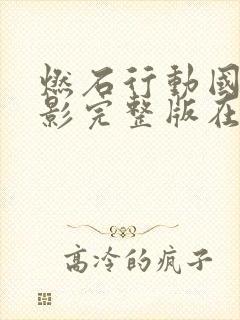 燃石行動國
影完整版在
高冷的疯子